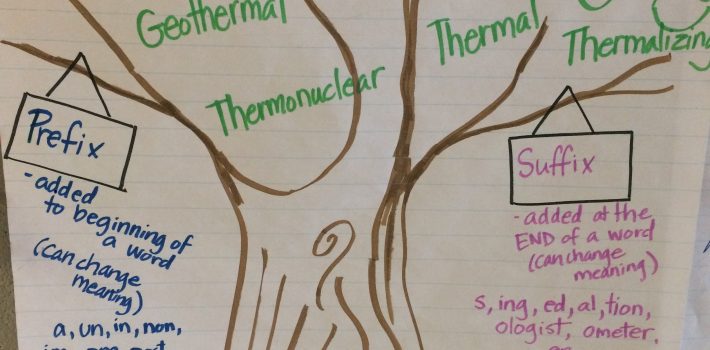 Geothermal
Thermal
Thermalizing
Thermonuclear
Prefix
- added
to beginning of
a word
(can change
meaning)
a, un, in, non,
Suffix
- added at the
END of a word
(can change
meaning)
s, ing, ed, al, tion,
ologist, ometer,